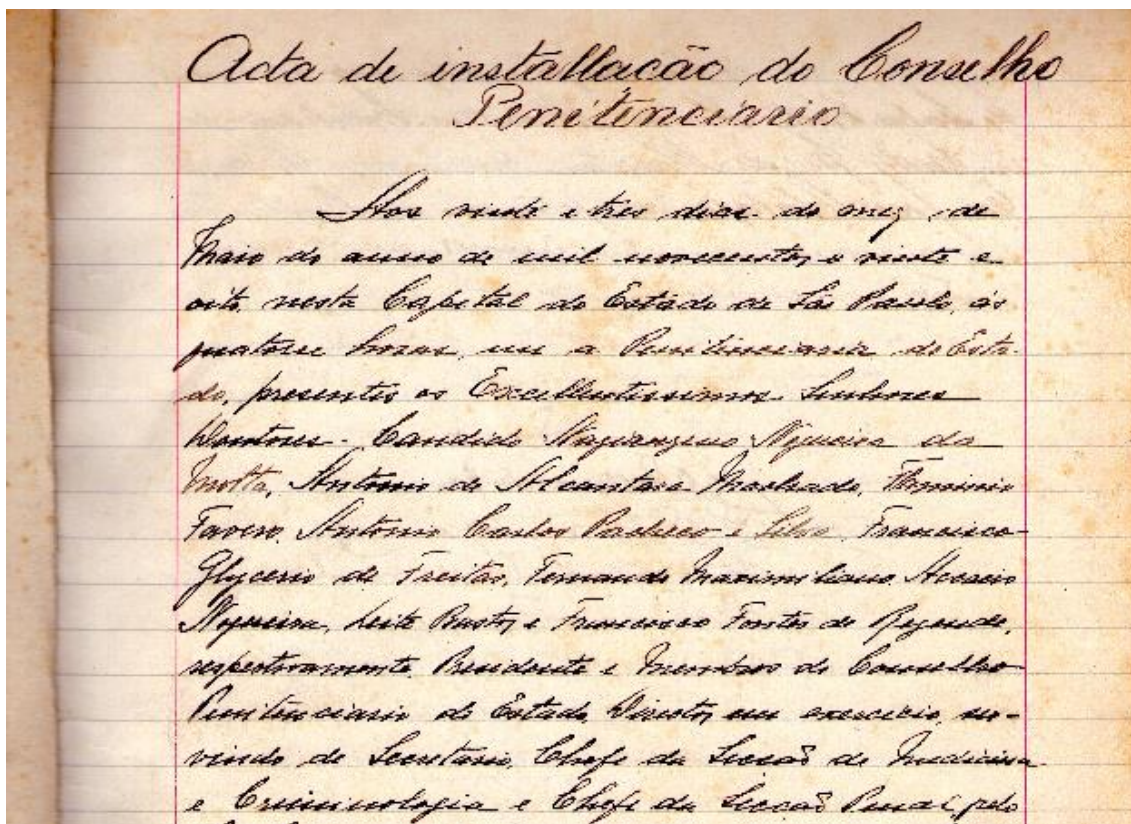 Acta de installação do Conselho
Penitenciario
Aos vinte e tres dias do mez de
Maio do anno de mil novecentos e vinte e
oito, nesta Capital do Estado de São Paulo, ás
quatorze horas, em a Penitenciaria do Esta-
do, presentes os Excellentissimos Senhores
Doutores Candido Nogueira da
Motta, Antonio de Alcantara Machado, Flaminio
Favero, Antonio Carlos Pacheco e Silva, Francisco
Glycerio de Freitas, Fernando Maximiliano, Accacio
Nogueira, Leite Bastos e Francisco Fontes de Rezende,
respectivamente Presidente e Membros do Conselho
Penitenciario do Estado, Director em exercicio, ser-
vindo de Secretario, Chefe da Secção de Medicina
e Criminologia e Chefe da Secção Penal, pelo